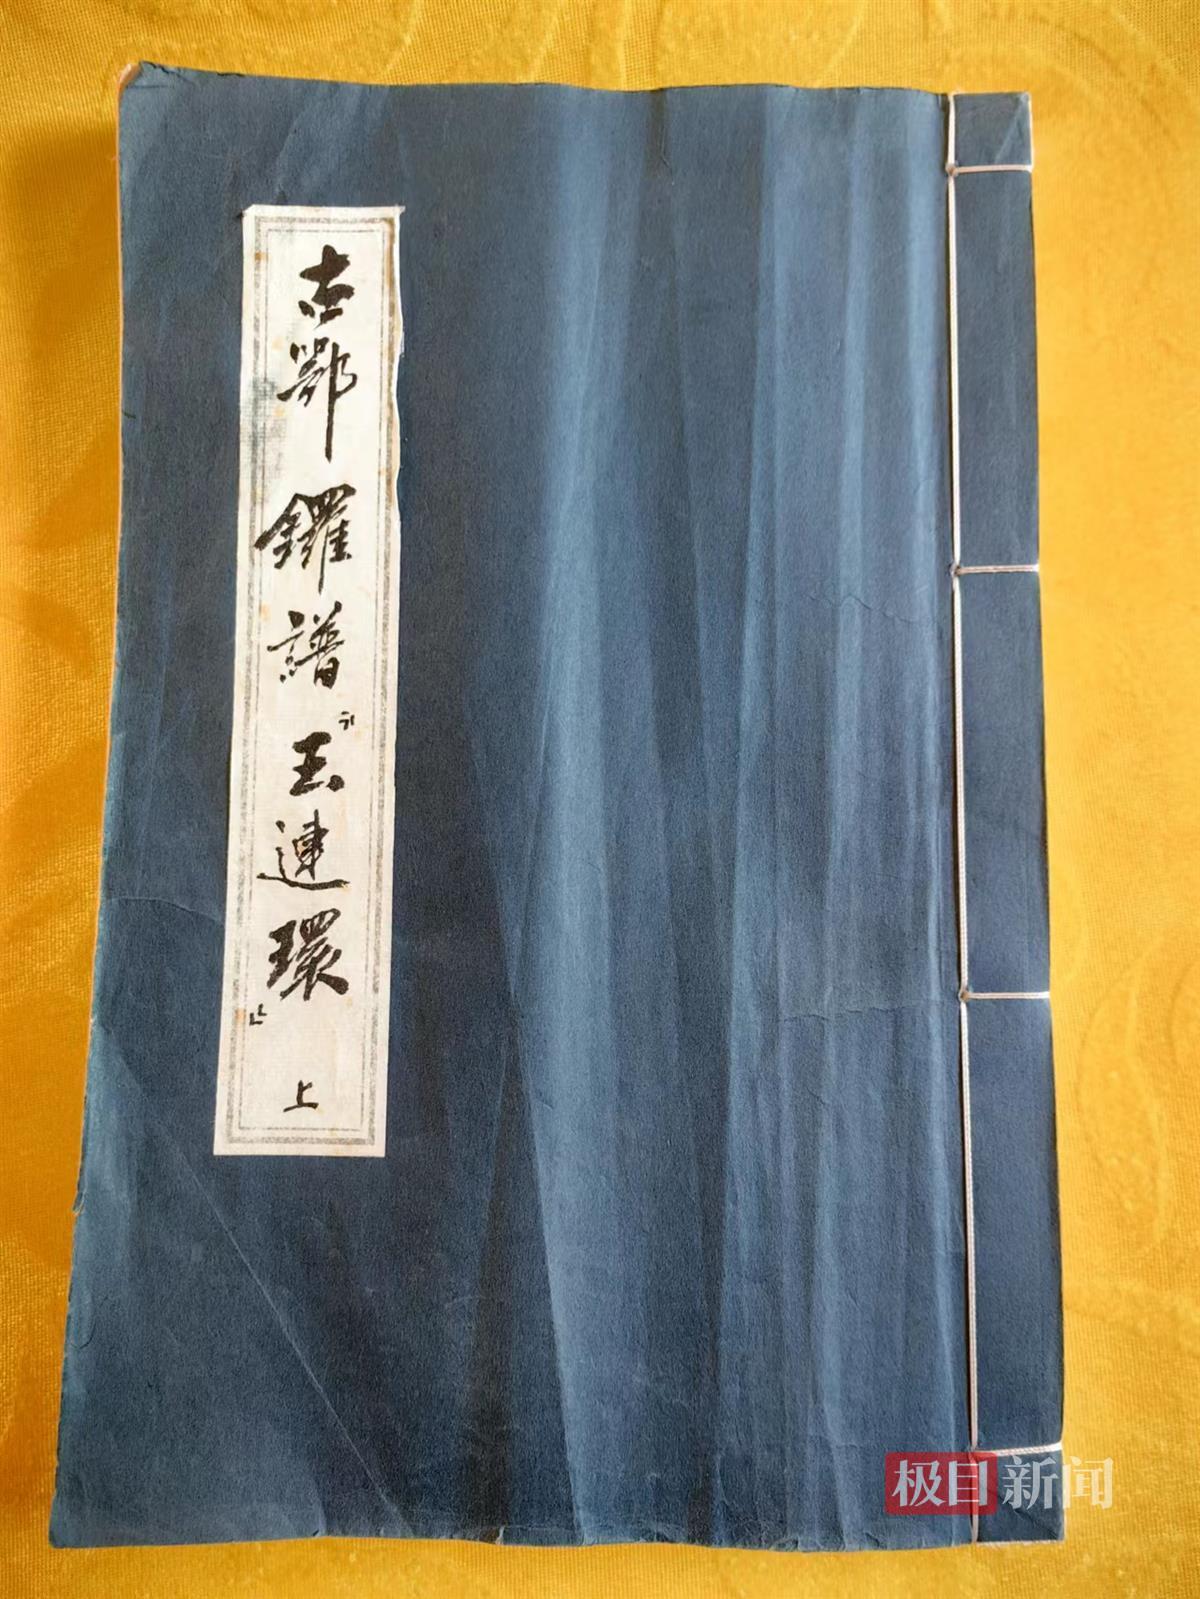 古鄂鑼譜“玉連環”上
极目新闻